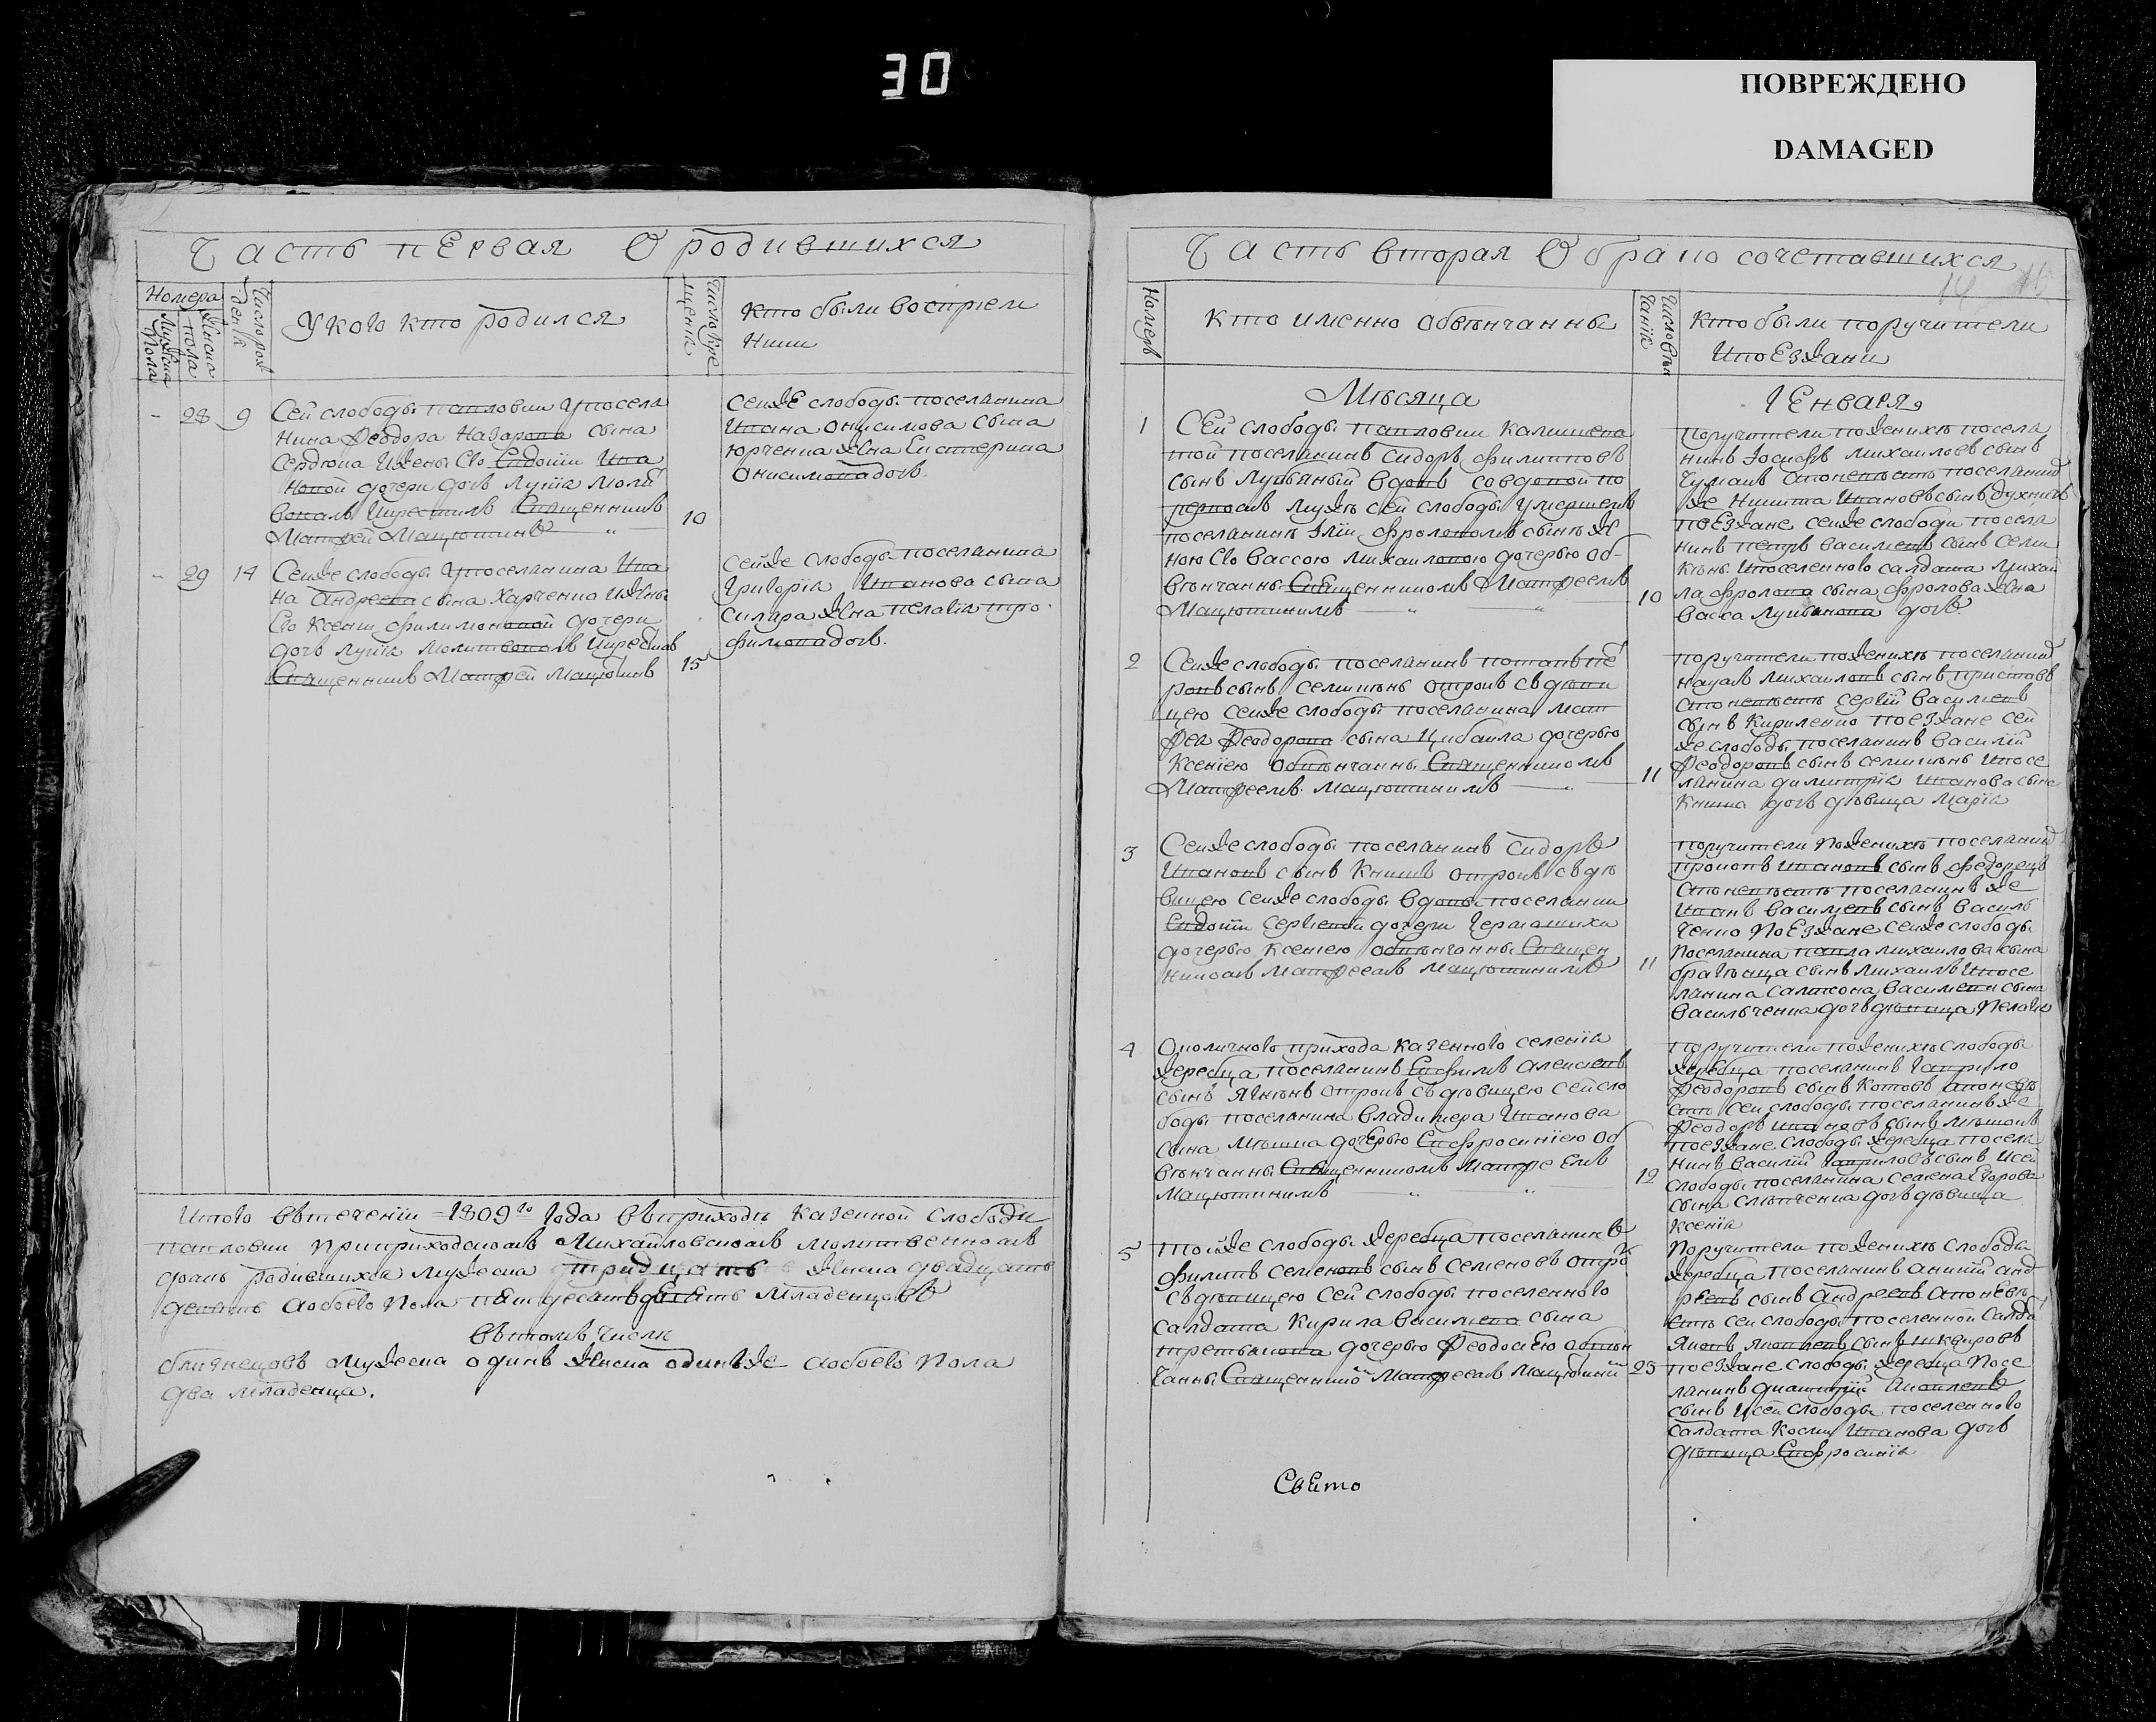 30
ПОВРЕЖДЕНО
DAMAGED
Часть первая О родившихся
Номера
Мужеска пола
Женска пола
Число рож
деніи
У кого кто родился
Число кре
щенія
Кто были восприем
ники
- 28 9
Сей слободы Павловки у посела
нина Феодора Назарова сына
Сердюка и жены его Евдокіи Ива
новой дочери дочь Лукіа молит
вовалъ и крестилъ Священникъ
Матфей Мацютинъ
10
Сейже слободы поселанина
Ивана Онисимова сына
Юрченка жена Екатерина
Онисимова дочь.
- 29 14
Сейже слободы у поселанина Ива
на Андреева сына Харченка и жены
его Ксеніи Филимоновой дочери
дочь Лукіа молитвовалъ и крестилъ
Священникъ Матфей Мацютинъ
15
Сейже слободы поселанина
Григоріа Иванова сына
жена Пелагіа Тро
фимова дочь.
Итого втеченіи 1809го года вприходѣ казенной слободы
Павловки при приходскомъ Михайловскомъ молитвенномъ
домѣ родившихся мужеска тридцать женска двадцать
девять а обоего пола пятдесятъ девять младенцовъ
втомъ числѣ
близнецовъ мужеска одинъ женска одинъ же а обоего пола
два младенца.
Часть вторая О бракосочетавшихся
14
Номеръ
Кто именно обвѣнчанны
Число вѣн
чаніа
Кто были поручители
и поезжани
Мѣсяца
Генваря
1
Сей слободы Павловки
той поселанинъ Сидоръ Филиповъ
сынъ вдовъ совдовой по
первомъ мужѣ сей слободы умершемъ
поселанинѣ Иліи Фроловомъ сынѣ же
ною его Вассою Михаиловою дочерью об-
вѣнчанны Священникомъ Матфеемъ
Мацютинимъ
10
Поручители по женихѣ посела
нинъ Іосифъ Михаиловъ сынъ
Чумакъ а по невѣстѣ поселанинъ
же Никита Ивановъ сынъ
Поезжане сейже слободи посела
нинъ Петръ Васильевъ сынъ Семи
кѣнъ и поселенного салдата Михаи
ла Фролова сына Фролова жена
Васса дочь.
2
Сейже слободы поселанинъ Потапъ Пе
ровъ сынъ Семикѣнъ отрокъ сдѣви
цею сейже слободы поселанина Мат
феа Феодорова сына Цибаила дочерью
Ксеніею обвѣнчанны Священникомъ
Матфеемъ Мацютинимъ
11
Поручители по женихѣ поселанинъ
Михаиловъ сынъ Приставъ
а по невѣстѣ Сергій Васильевъ
сынъ Кириленко поезжане сей
же слободы поселанинъ Василій
Феодоровъ сынъ Семикѣнъ и посе
ланина Димитріа Иванова сына
Книша дочь дѣвица Маріа
3
Сейже слободы поселанинъ Сидоръ
Ивановъ сынъ Книшъ отрокъ сдѣ
вицею сейже слободы вдовы поселанки
Евдокіи Сергіевой дочери
дочерью Ксеніею обвѣнчанны Священ
никомъ Матфеемъ Мацютинимъ
11
Поручители по женихѣ поселанинъ
Прокопъ Ивановъ сынъ Федорецъ
а по невѣстѣ поселанинъ же
Иванъ Васильевъ сынъ Василь
ченко Поезжане сейже слободы
поселанина Павла Михаилова сына
сынъ Михаилъ и посе
ланина Самсона Васильева сына
Васильченка дочь дѣвица Пелагіа
4
Околичного прихода казенного селеніа
Жеребца поселанинъ Евфимъ Алексѣевъ
сынъ отрокъ съдѣвицею сей сло
боды поселанина Владимера Иванова
сына Мѣшка дочерью Евфросиніею об
вѣнчанны Священникомъ Матфеемъ
Мацютинимъ
12
Поручители по женихѣ слободы
Жеребца поселанинъ Гаврило
Феодоровъ сынъ Котовъ а по невѣ
стѣ сей слободы поселанинъ же
Феодоръ Ивановъ сынъ Мѣшокъ
поезжане слободы Жеребца посела
нинъ Василій Гавриловъ сынъ и сей
слободы поселанина Семена Егорова
сына Слѣпченка дочь дѣвица
Ксеніа
5
Тойже слободы Жеребца поселанинъ
Филипъ Семеновъ сынъ Семеновъ отрокъ
съдѣвицею сей слободы поселенного
салдата Кирила Васильева сына
Третьякова дочерью Феодосіею обвѣн
чанны Священникомъ Матфеемъ Мацютиним
23
Поручители по женихѣ слободы
Жеребца поселанинъ Аникій Анд
реевъ сынъ Андреевъ а по невѣ
стѣ сей слободы поселенной салдатъ
Яковъ Яковлевъ сынъ
поезжане слободы Жеребца посе
ланинъ Яковлевъ
сынъ и сей слободы поселенного
салдата Косми Иванова дочь
дѣвица Евфросиніа
Свято